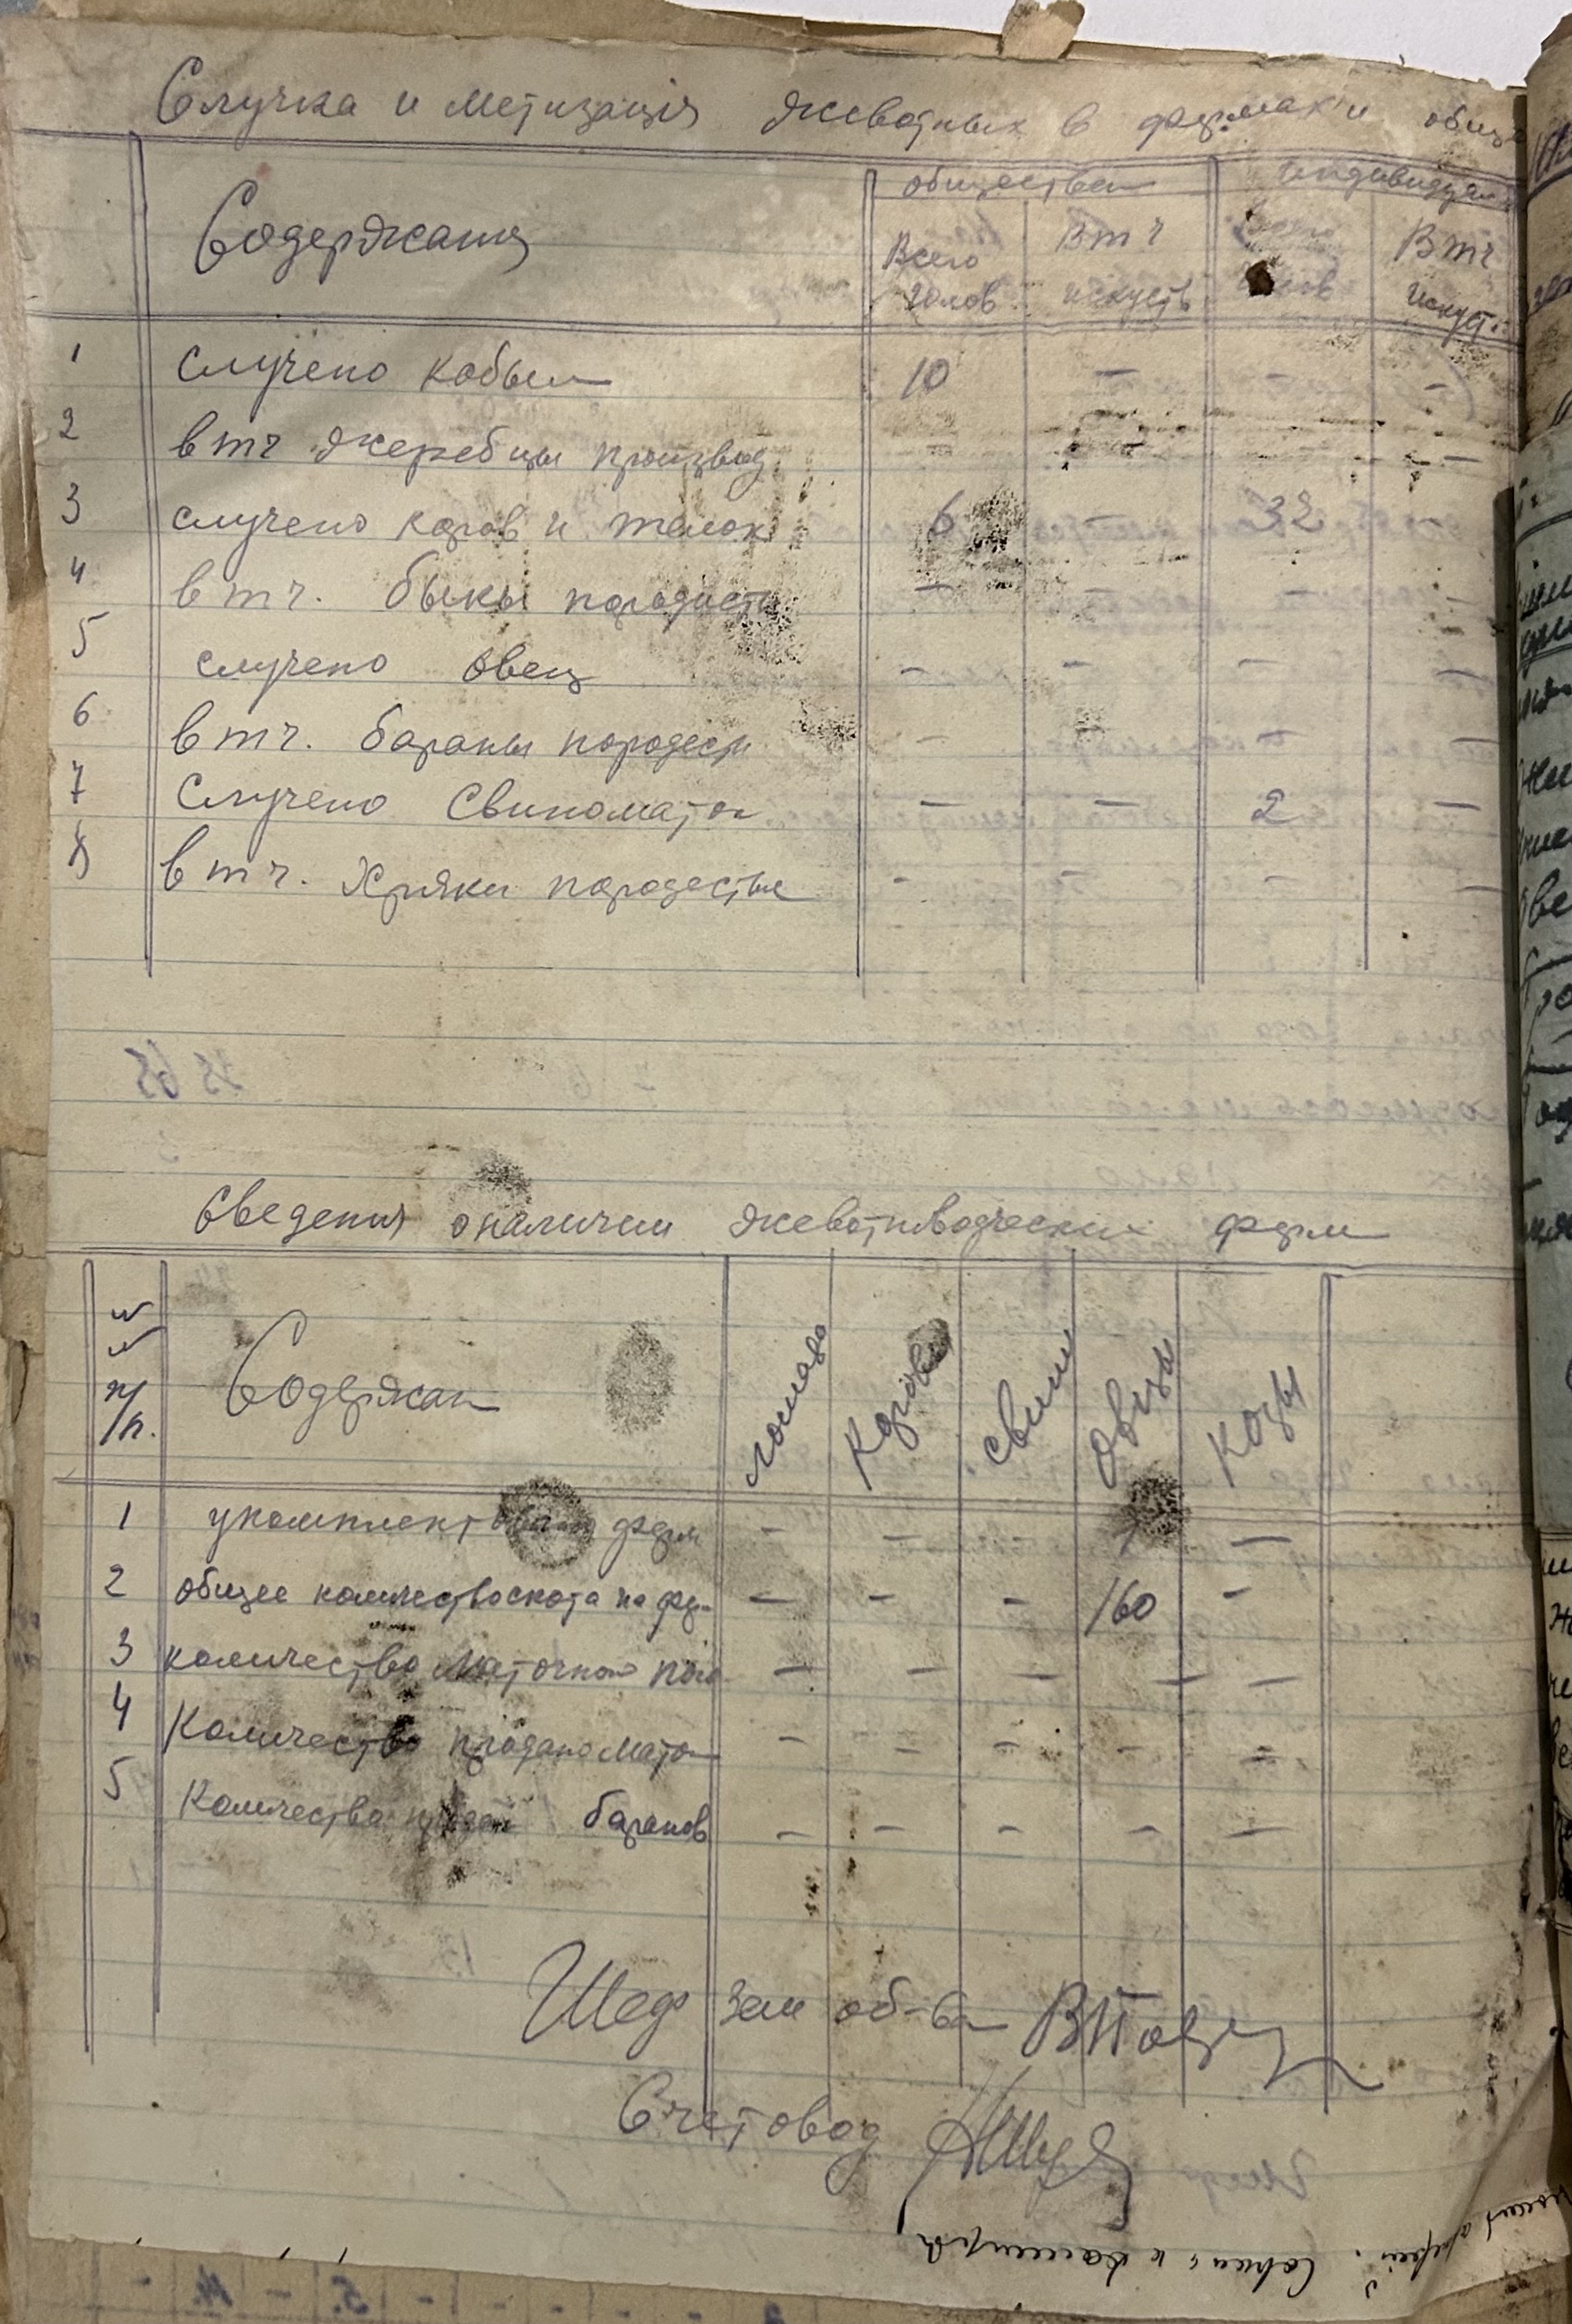 Случка и метизація животных в фермах и общ
Содержания общественн индивидуал
Всего голов В т ч искуств Всего голов В т ч искуст.
1 случено кобыл 10 - - -
2 в т ч жеребцы производ. - - - -
3 случено коров и телок 6 - 32 -
4 в т ч. быки породист - - - -
5 случено овец - - - -
6 в т ч. бараны породест - - - -
7 Случено Свиноматок - - 2 -
8 в т ч. Хряки породестые - - - -
Сведения о наличии животноводческих ферм
№ № п/п. Содержан лошади Коровы свиньи Овцы Козы
1 укомплектовано ферм - - - 1 -
2 общее количество скота на фер - - - 160 -
3 количество маточного пого - - - - -
4 Количество продано маток - - - - -
5 Количество продан баранов - - - - -
Шеф Зем об-ва
Счетовод